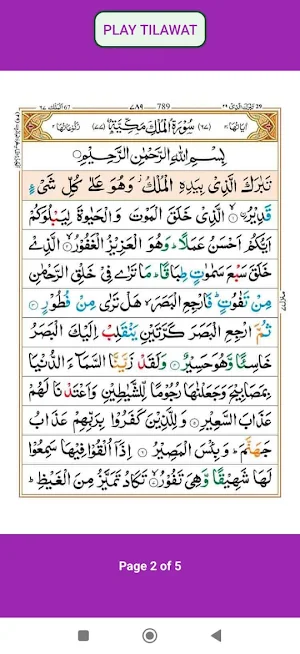 PLAY TILAWAT
٧٨٩ 789
سُوْرَةُ الْمُلْكِ مَكِّيَّةٌ
بِسْمِ اللّٰهِ الرَّحْمٰنِ الرَّحِيْمِ
تَبٰرَكَ الَّذِيْ بِيَدِهِ الْمُلْكُ وَهُوَ عَلٰى كُلِّ شَيْءٍ
قَدِيْرُۨ ۝١ الَّذِيْ خَلَقَ الْمَوْتَ وَالْحَيٰوةَ لِيَبْلُوَكُمْ
اَيُّكُمْ اَحْسَنُ عَمَلًا ؕ وَهُوَ الْعَزِيْزُ الْغَفُوْرُ ۝٢ الَّذِيْ
خَلَقَ سَبْعَ سَمٰوٰتٍ طِبَاقًا ؕ مَا تَرٰى فِيْ خَلْقِ الرَّحْمٰنِ
مِنْ تَفٰوُتٍ ؕ فَارْجِعِ الْبَصَرَ ۙ هَلْ تَرٰى مِنْ فُطُوْرٍ ۝٣
ثُمَّ ارْجِعِ الْبَصَرَ كَرَّتَيْنِ يَنْقَلِبْ اِلَيْكَ الْبَصَرُ
خَاسِئًا وَّهُوَ حَسِيْرٌ ۝٤ وَلَقَدْ زَيَّنَّا السَّمَآءَ الدُّنْيَا
بِمَصَابِيْحَ وَجَعَلْنٰهَا رُجُوْمًا لِّلشَّيٰطِيْنِ وَاَعْتَدْنَا لَهُمْ
عَذَابَ السَّعِيْرِ ۝٥ وَلِلَّذِيْنَ كَفَرُوْا بِرَبِّهِمْ عَذَابُ
جَهَنَّمَ ؕ وَبِئْسَ الْمَصِيْرُ ۝٦ اِذَآ اُلْقُوْا فِيْهَا سَمِعُوْا
لَهَا شَهِيْقًا وَّهِيَ تَفُوْرُ ۝٧ تَكَادُ تَمَيَّزُ مِنَ الْغَيْظِ ؕ
Page 2 of 5